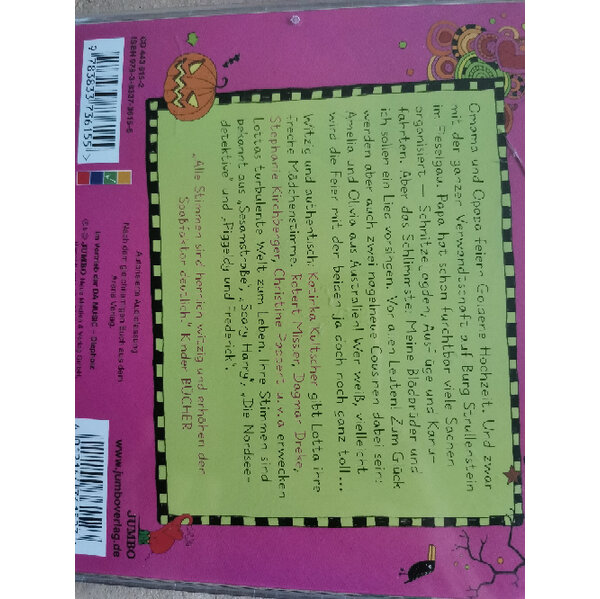 Omama und Opapa feiern Goldene Hochzeit. Und zwar
mit der ganzen Verwandtschaft auf Burg Strullenstein
im Feselgau. Papa hat schon furchtbar viele Sachen
organisiert — Schnitzeljagden, Ausflüge und Kanu-
fahrten. Aber das Schlimmste: Meine Blödbrüder und
ich sollen ein Lied vorsingen. Vor allen Leuten! Zum Glück
werden aber auch zwei nagelneue Cousinen dabei sein:
Amelia und Olivia aus Australien! Wer weiß, vielleicht
wird die Feier mit den beiden ja doch noch ganz toll ...
Witzig und authentisch: Katinka Kultscher gibt Lotta ihre
freche Mädchenstimme. Robert Missler, Dagmar Dreke,
Stephanie Kirchberger, Christine Pappert u.v.a erwecken
Lottas turbulente Welt zum Leben. Ihre Stimmen sind
bekannt aus „Sesamstraße“, „Scary Harry“, „Die Nordsee-
detektive“ und „Piggeldy und Frederick“.
„Alle Stimmen sind herrlich witzig und erhöhen den
Spaßfaktor deutlich.“ Kinder BÜCHER
Autorisierte Audiofassung
Nach dem gleichnamigen Buch aus dem
Arena Verlag.
Im Vertrieb der DA MUSIC – Diepholz
JUMBO Neue Medien & Verlag GmbH
CD 443 615-2
ISBN 978-3-8337-3615-5
9 783833 736155 >
JUMBO
www.jumboverlag.de